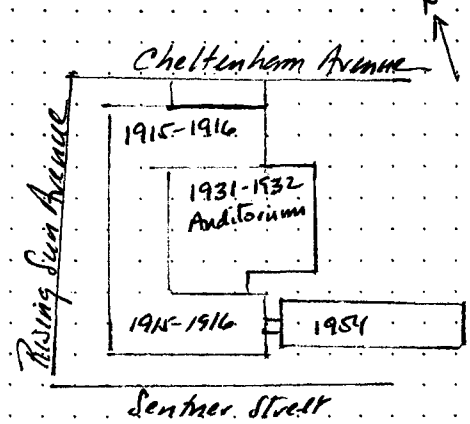 Cheltenham Avenue
Rising Sun Avenue
1915-1916
1931-1932
Auditorium
1915-1916
1954
Sentner Street